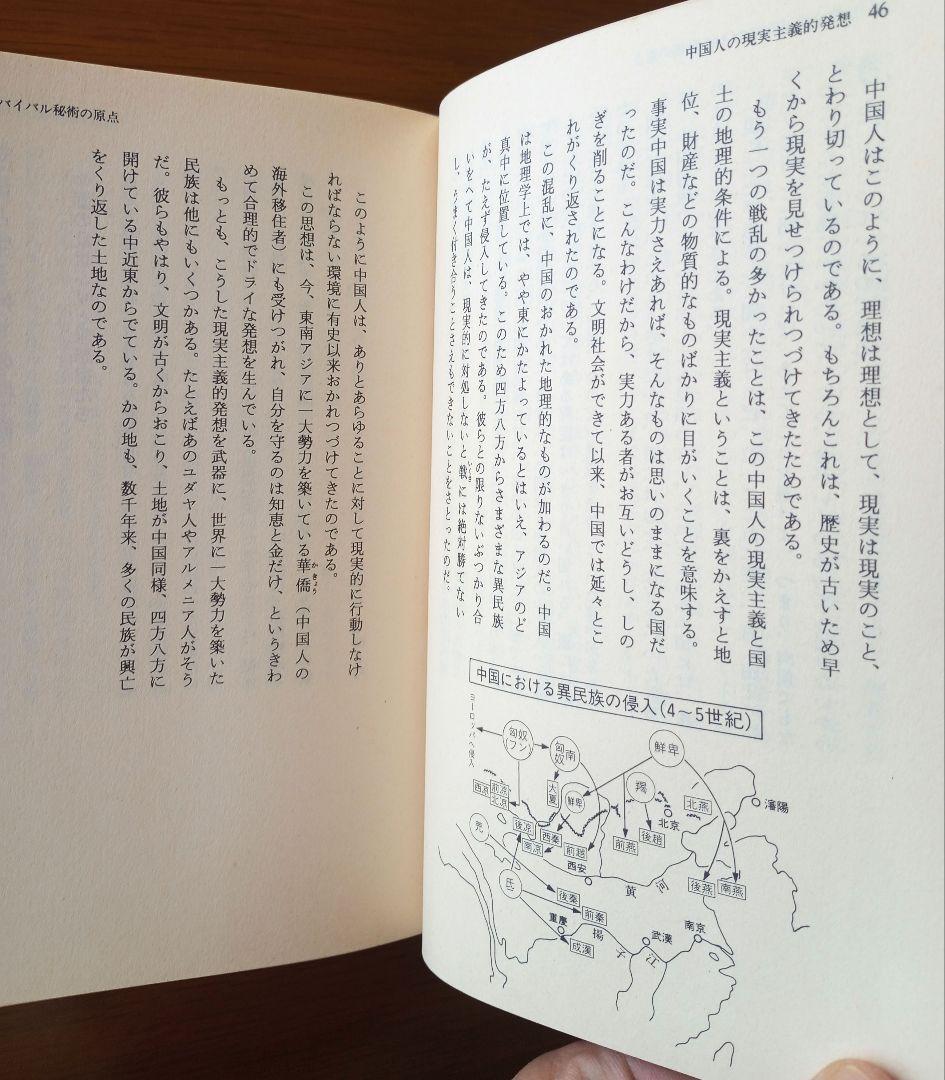 46
中国人の現実主義的発想
中国人はこのように、理想は理想として、現実は現実のこと、
とわり切っているのである。もちろんこれは、歴史が古いため早
くから現実を見せつけられつづけてきたためである。
もう一つの戦乱の多かったことは、この中国人の現実主義と国
土の地理的条件による。現実主義ということは、裏をかえすと地
位、財産などの物質的なものばかりに目がいくことを意味する。
事実中国は実力さえあれば、そんなものは思いのままになる国だ
ったのだ。こんなわけだから、実力ある者がお互いどうし、しの
ぎを削ることになる。文明社会ができて以来、中国では延々とこ
れがくり返されたのである。
この混乱に、中国のおかれた地理的なものが加わるのだ。中国
は地理学上では、やや東にかたよっているとはいえ、アジアのど
真中に位置している。このため四方八方からさまざまな異民族
が、たえず侵入してきたのである。彼らとの限りないぶつかり合
いをへて中国人は、現実的に対処しないと戦には絶対勝てない
し、うまく付き合うことさえもできないことをさとったのだ。
中国における異民族の侵入(4〜5世紀)
ヨーロッパへ侵入
匈奴
(フン)
南
匈奴
鮮卑
西涼
前涼
北涼
大夏
鮮卑
羯
北燕
瀋陽
北京
羌
後涼
南涼
西秦
前趙
前燕
後趙
西安
黄河
後燕
南燕
氐
後秦
前秦
重慶
成漢
揚子江
武漢
南京
バイバル秘術の原点
このように中国人は、ありとあらゆることに対して現実的に行動しなけ
ればならない環境に有史以来おかれつづけてきたのである。
この思想は、今、東南アジアに一大勢力を築いている華僑（中国人の
かきょう
海外移住者）にも受けつがれ、自分を守るのは知恵と金だけ、というきわ
めて合理的でドライな発想を生んでいる。
もっとも、こうした現実主義的発想を武器に、世界に一大勢力を築いた
民族は他にもいくつかある。たとえばあのユダヤ人やアルメニア人がそう
だ。彼らもやはり、文明が古くからおこり、土地が中国同様、四方八方に
開けている中近東からでている。かの地も、数千年来、多くの民族が興亡
をくり返した土地なのである。